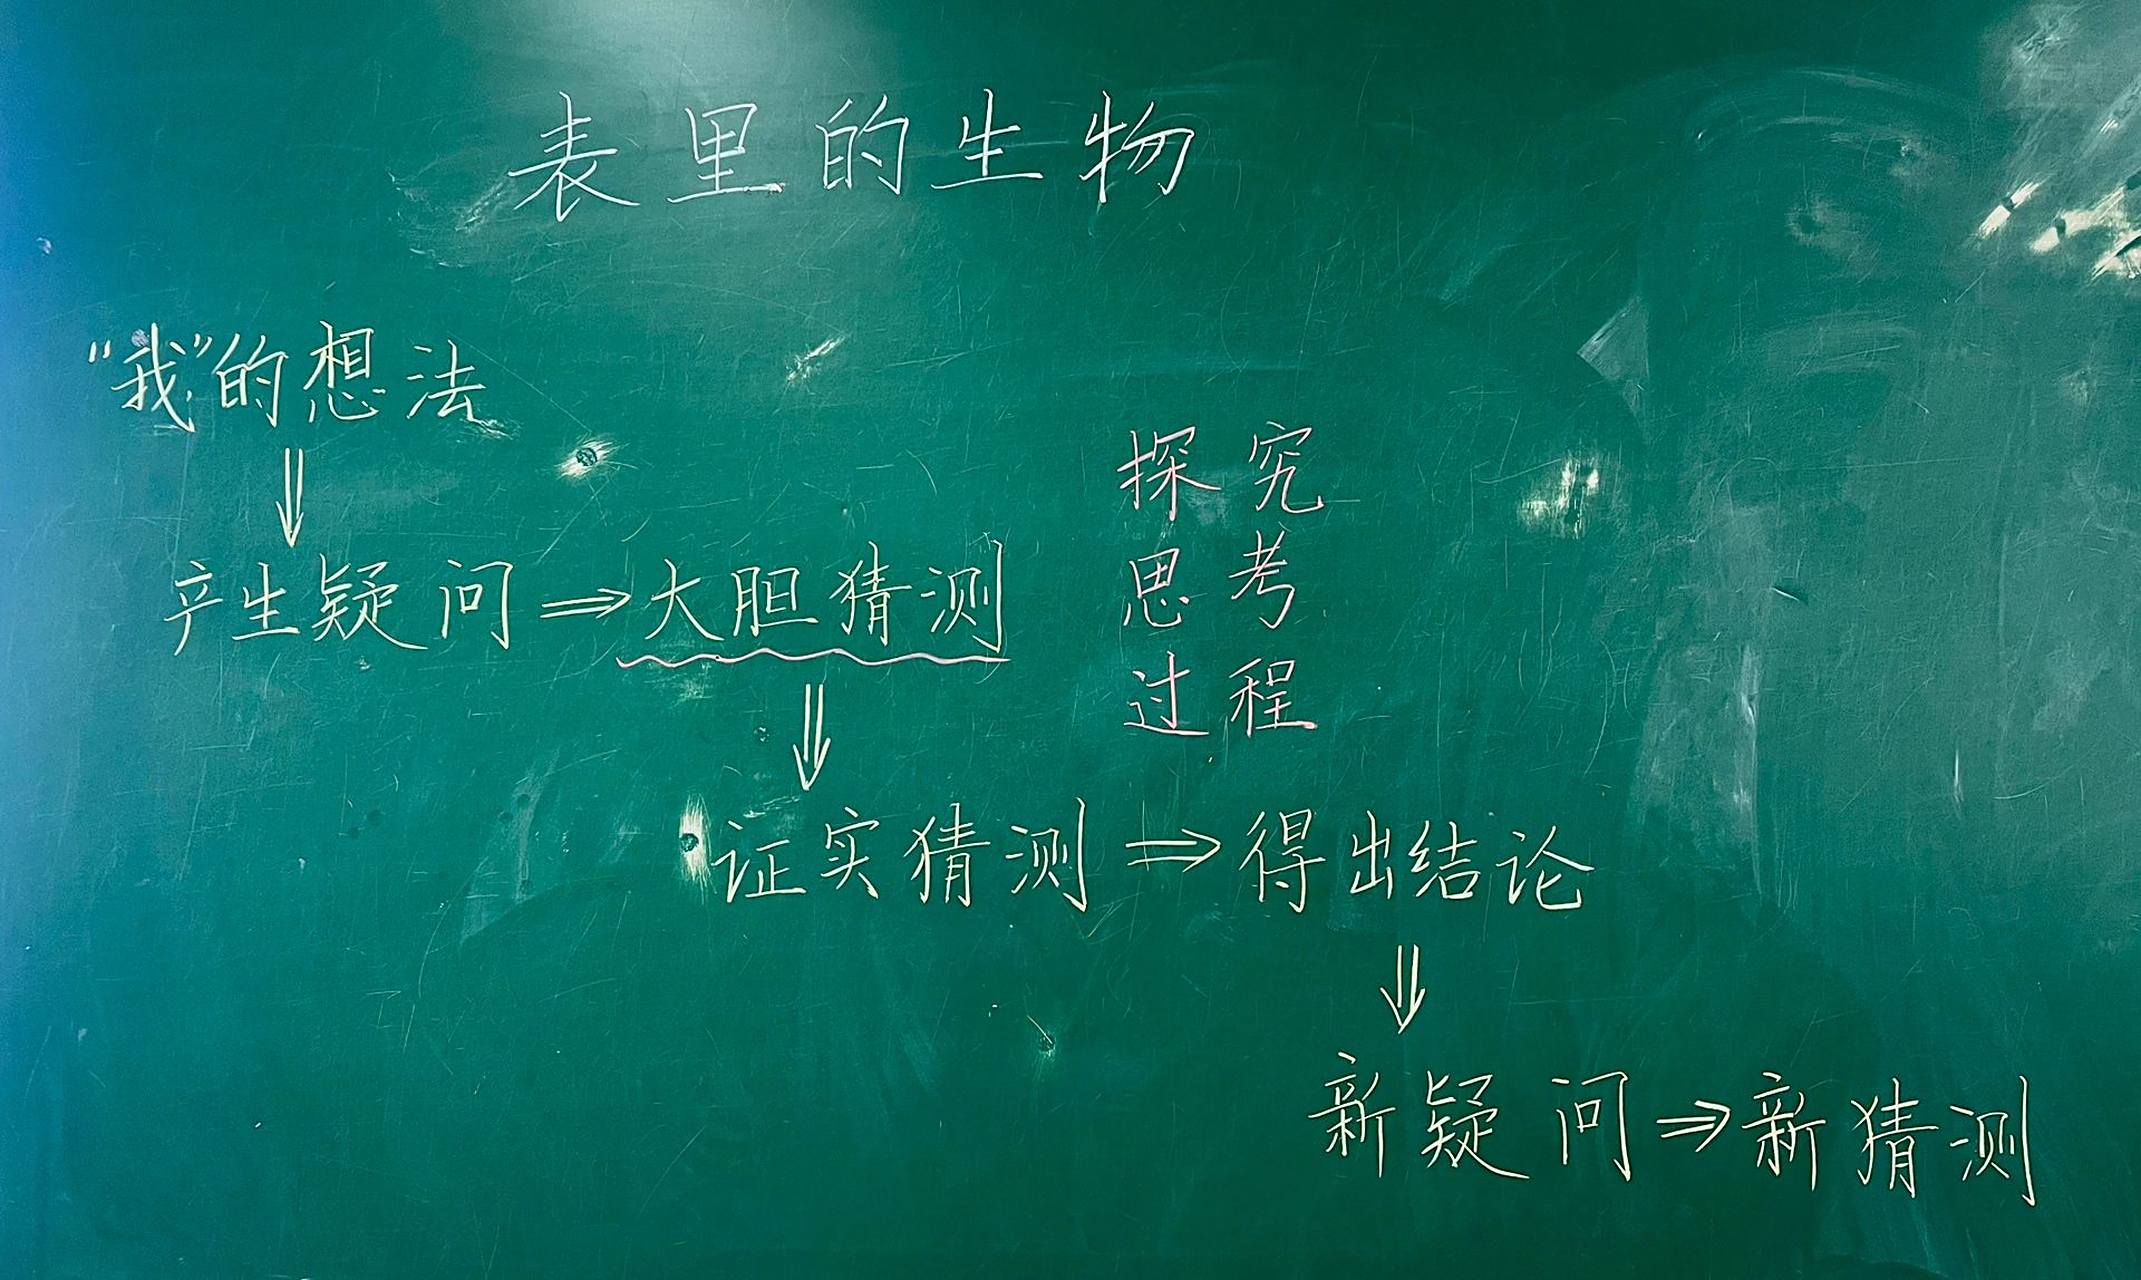 表里的生物
“我”的想法
⇓
产生疑问⇒大胆猜测
⇓
探究
思考
过程
证实猜测⇒得出结论
⇓
新疑问⇒新猜测